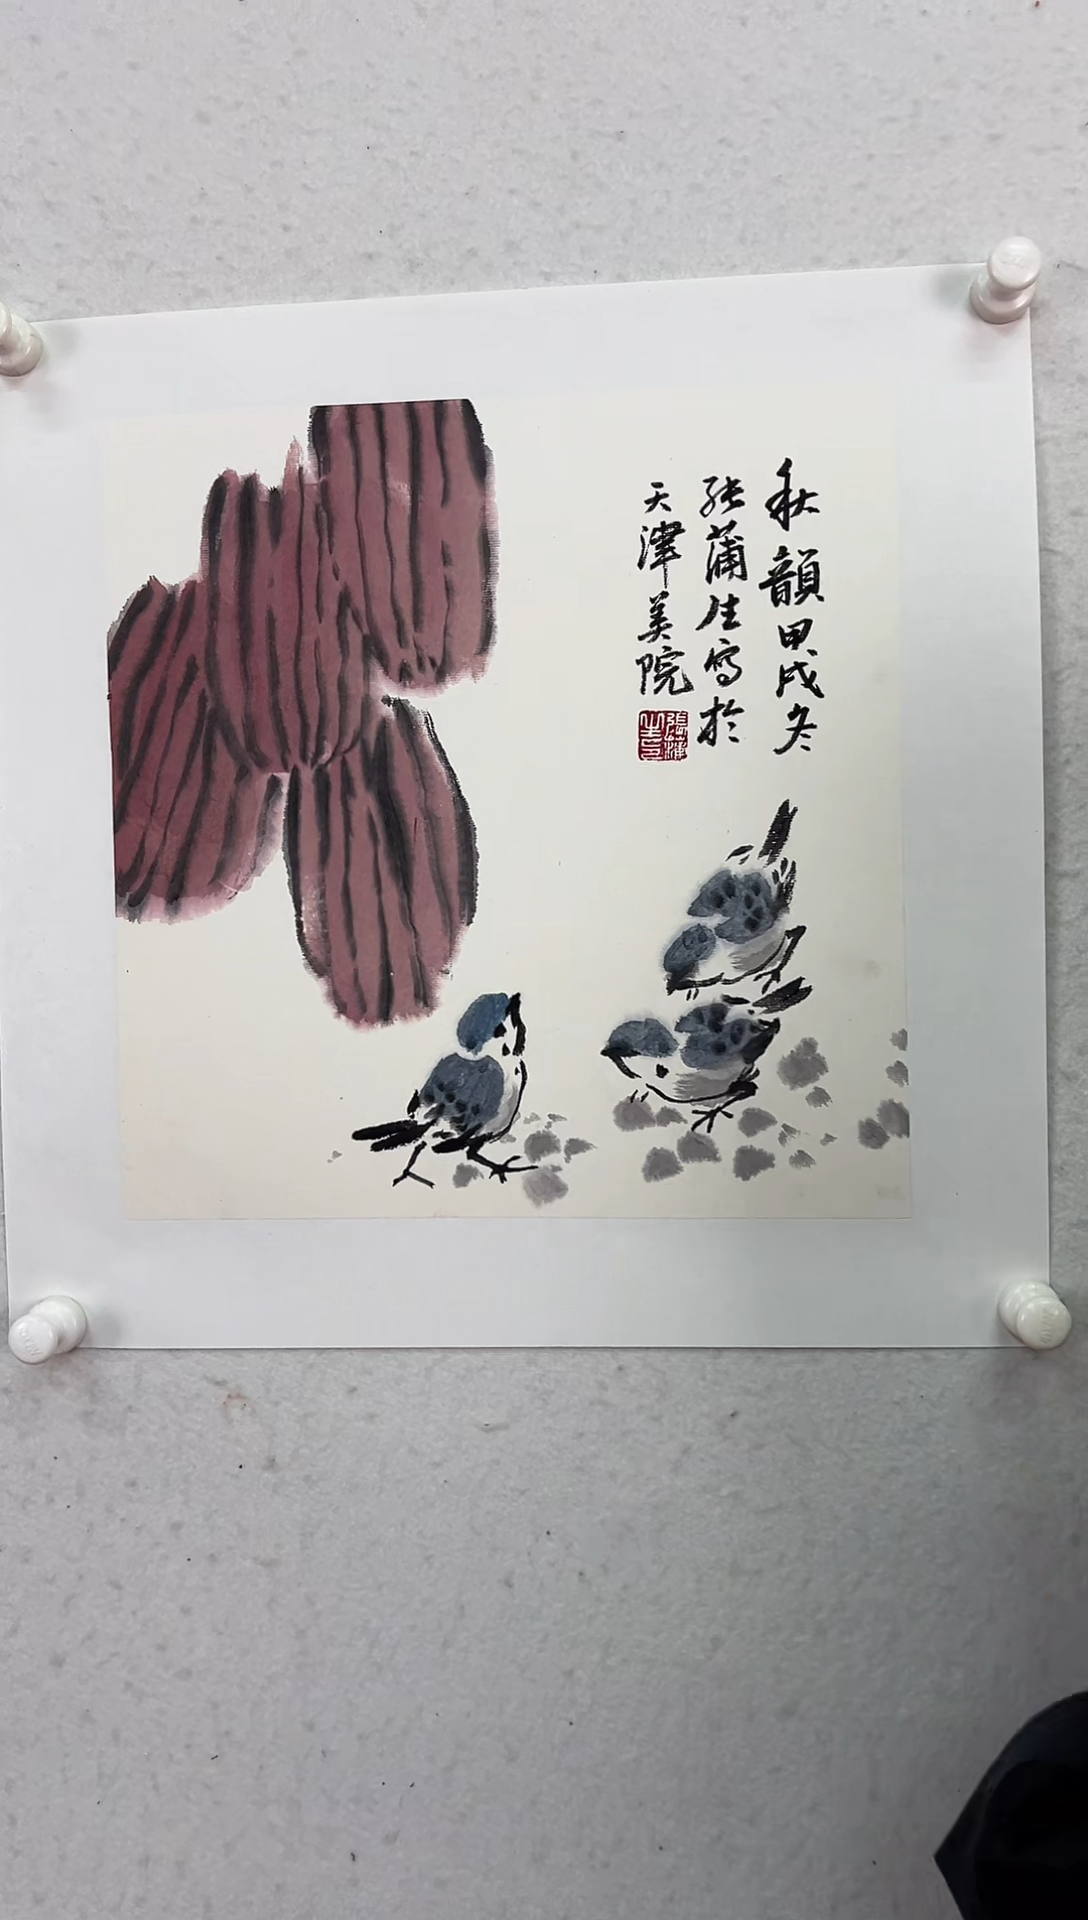 秋韻甲戌冬
张蒲生寫於
天津美院
張蒲
生印